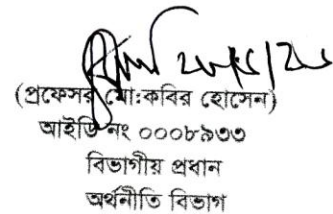 (প্রফেসর মো:কবির হোসেন)
আইডি নং ০০০৮৯৩৩
বিভাগীয় প্রধান
অর্থনীতি বিভাগ